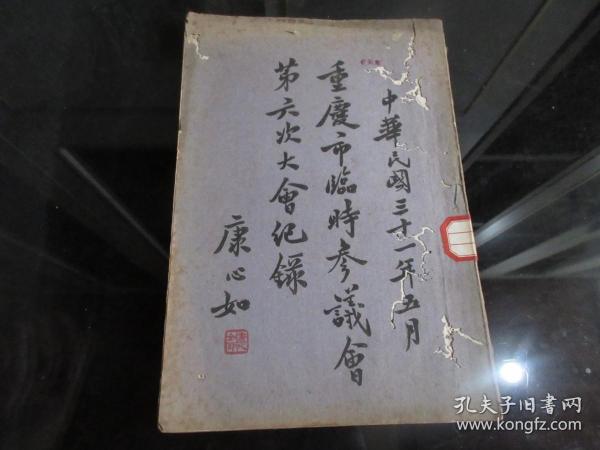 中華民國三十一年五月
重慶市臨時參議會
第六次大會紀錄
康心如
孔夫子旧书网
www.kongfz.com